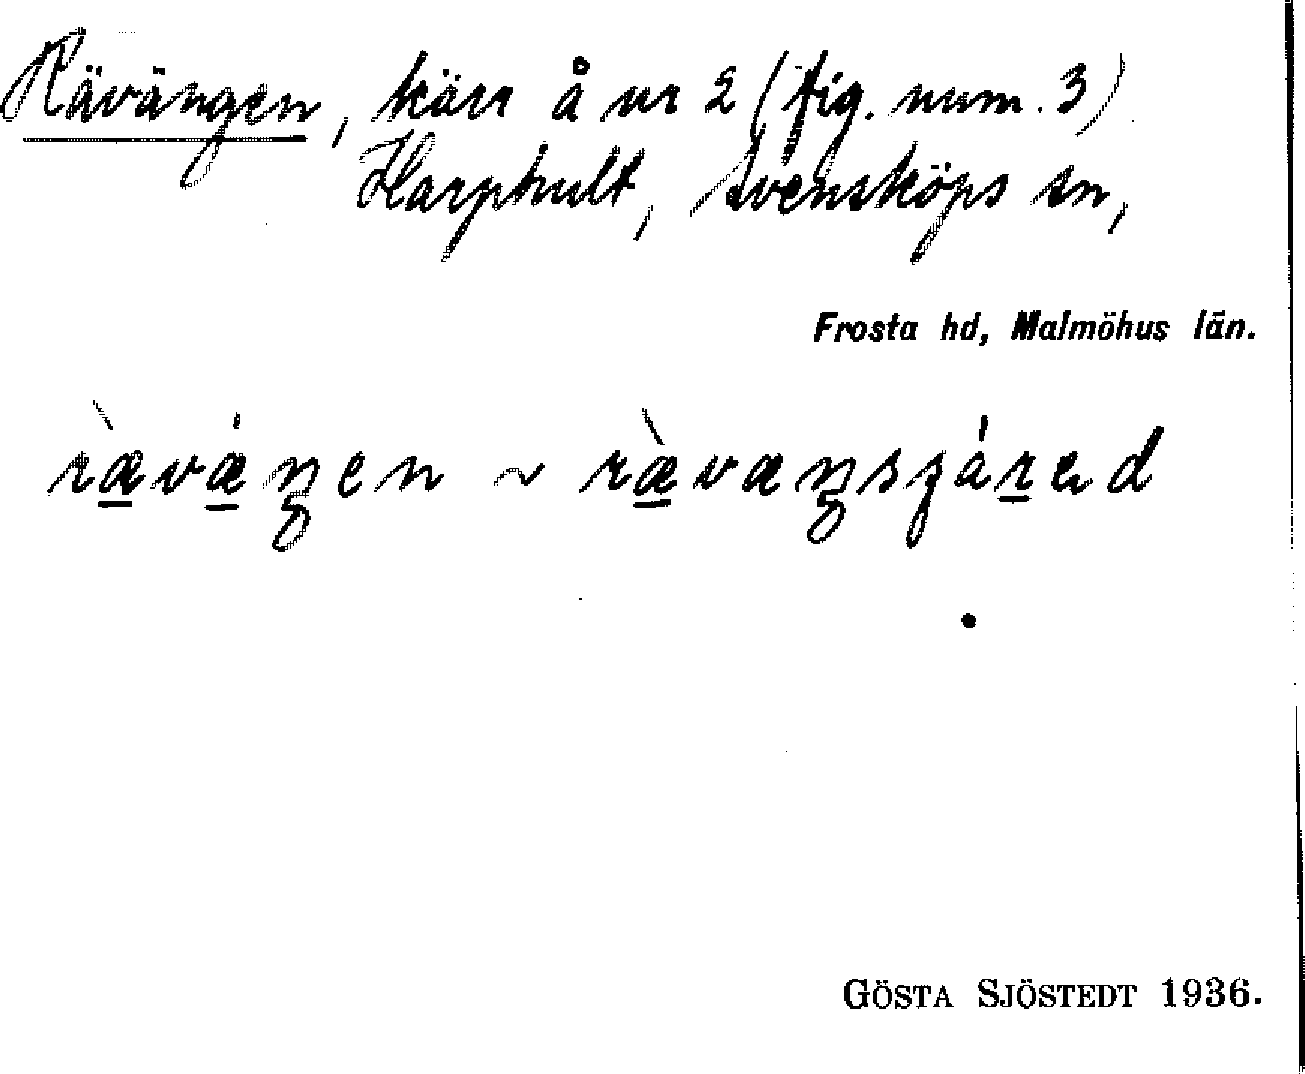 Rävängen, kärr å nr 2 (fig. num. 3)
Harphult, Svensköps sn,
Frosta hd, Malmöhus län.
ræ̀vǽŋen ~ ræ̀væŋsjáred
GÖSTA SJÖSTEDT 1936.